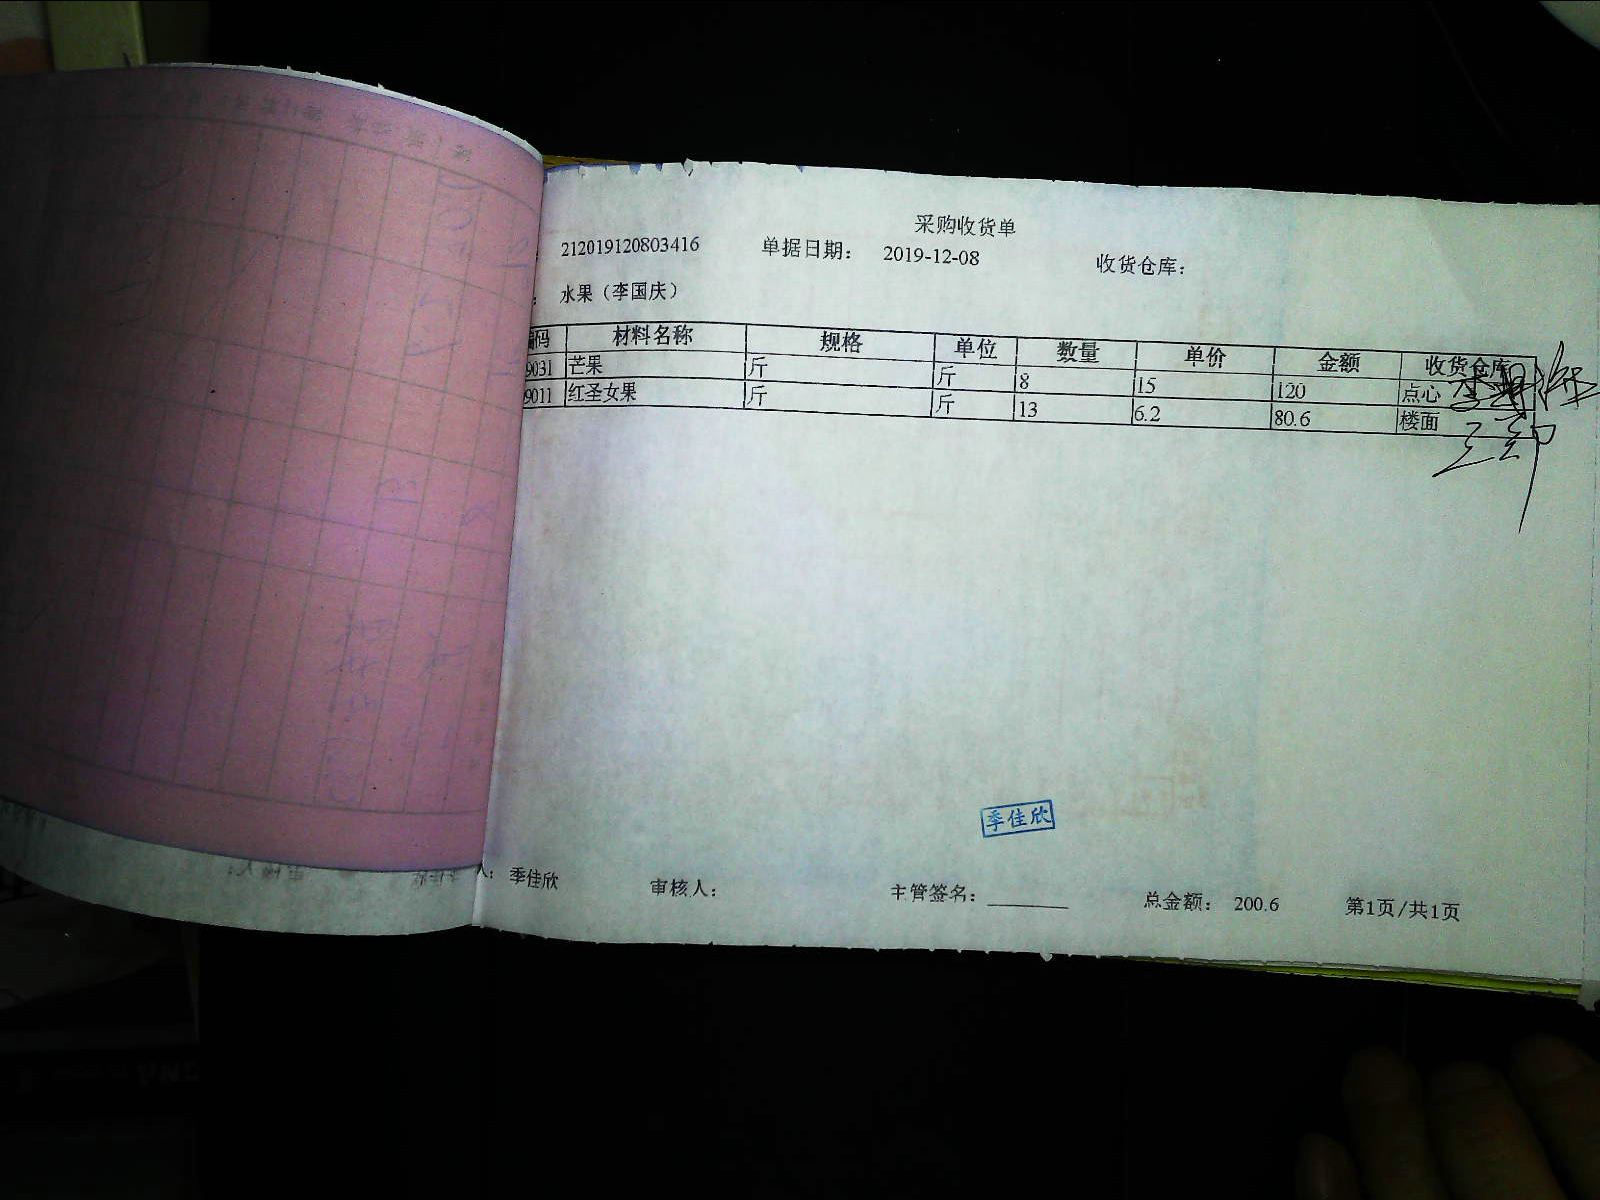 采购收货单
212019120803416 单据日期: 2019-12-08 收货仓库:
: 水果(李国庆)
编码 材料名称 规格 单位 数量 单价 金额 收货仓库
9031 芒果 斤 斤 8 15 120 点心
9011 红圣女果 斤 斤 13 6.2 80.6 楼面
季佳欣
人: 季佳欣 审核人: 主管签名: 总金额: 200.6 第1页/共1页